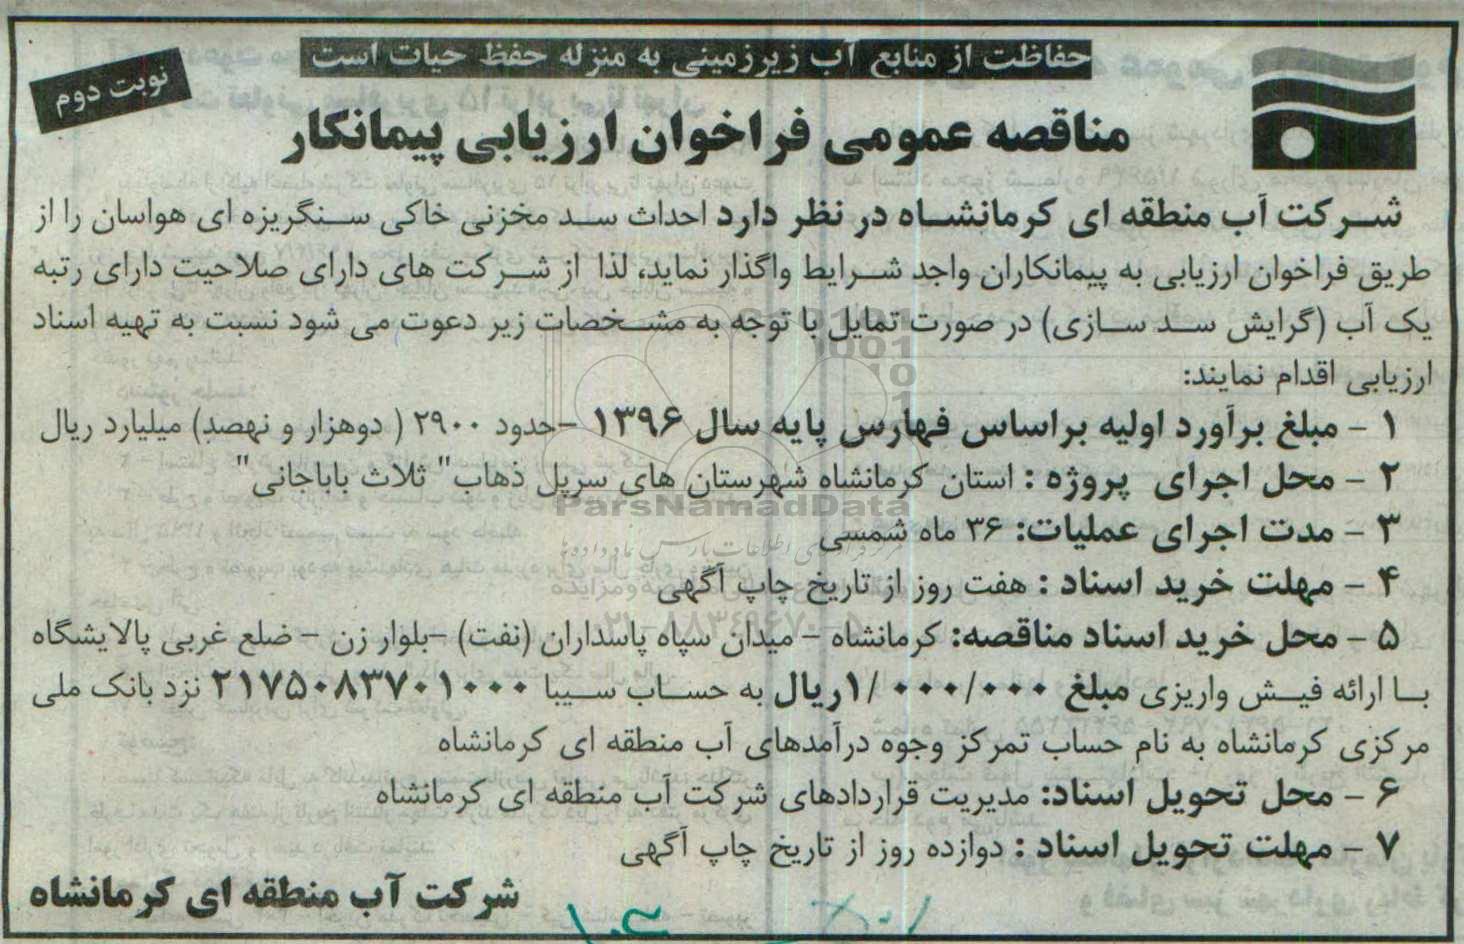 حفاظت از منابع آب زیرزمینی به منزله حفظ حیات است
نوبت دوم
مناقصه عمومی فراخوان ارزیابی پیمانکار
شرکت آب منطقه ای کرمانشاه در نظر دارد احداث سد مخزنی خاکی سنگریزه ای هواسان را از
طریق فراخوان ارزیابی به پیمانکاران واجد شرایط واگذار نماید، لذا از شرکت های دارای صلاحیت دارای رتبه
یک آب (گرایش سد سازی) در صورت تمایل با توجه به مشخصات زیر دعوت می شود نسبت به تهیه اسناد
ارزیابی اقدام نمایند:
۱ - مبلغ برآورد اولیه براساس فهارس پایه سال ۱۳۹۶ -حدود ۲۹۰۰ ( دوهزار و نهصد) میلیارد ریال
۲ - محل اجرای پروژه : استان کرمانشاه شهرستان های سرپل ذهاب" ثلاث باباجانی"
۳ - مدت اجرای عملیات: ۳۶ ماه شمسی
۴ - مهلت خرید اسناد : هفت روز از تاریخ چاپ آگهی
۵ - محل خرید اسناد مناقصه: کرمانشاه - میدان سپاه پاسداران (نفت) -بلوار زن - ضلع غربی پالایشگاه
با ارائه فیش واریزی مبلغ ۱/۰۰۰/۰۰۰ریال به حساب سیبا ۲۱۷۵۰۸۳۷۰۱۰۰۰ نزد بانک ملی
مرکزی کرمانشاه به نام حساب تمرکز وجوه درآمدهای آب منطقه ای کرمانشاه
۶ - محل تحویل اسناد: مدیریت قراردادهای شرکت آب منطقه ای کرمانشاه
۷ - مهلت تحویل اسناد : دوازده روز از تاریخ چاپ آگهی
شرکت آب منطقه ای کرمانشاه
ParsNamadData